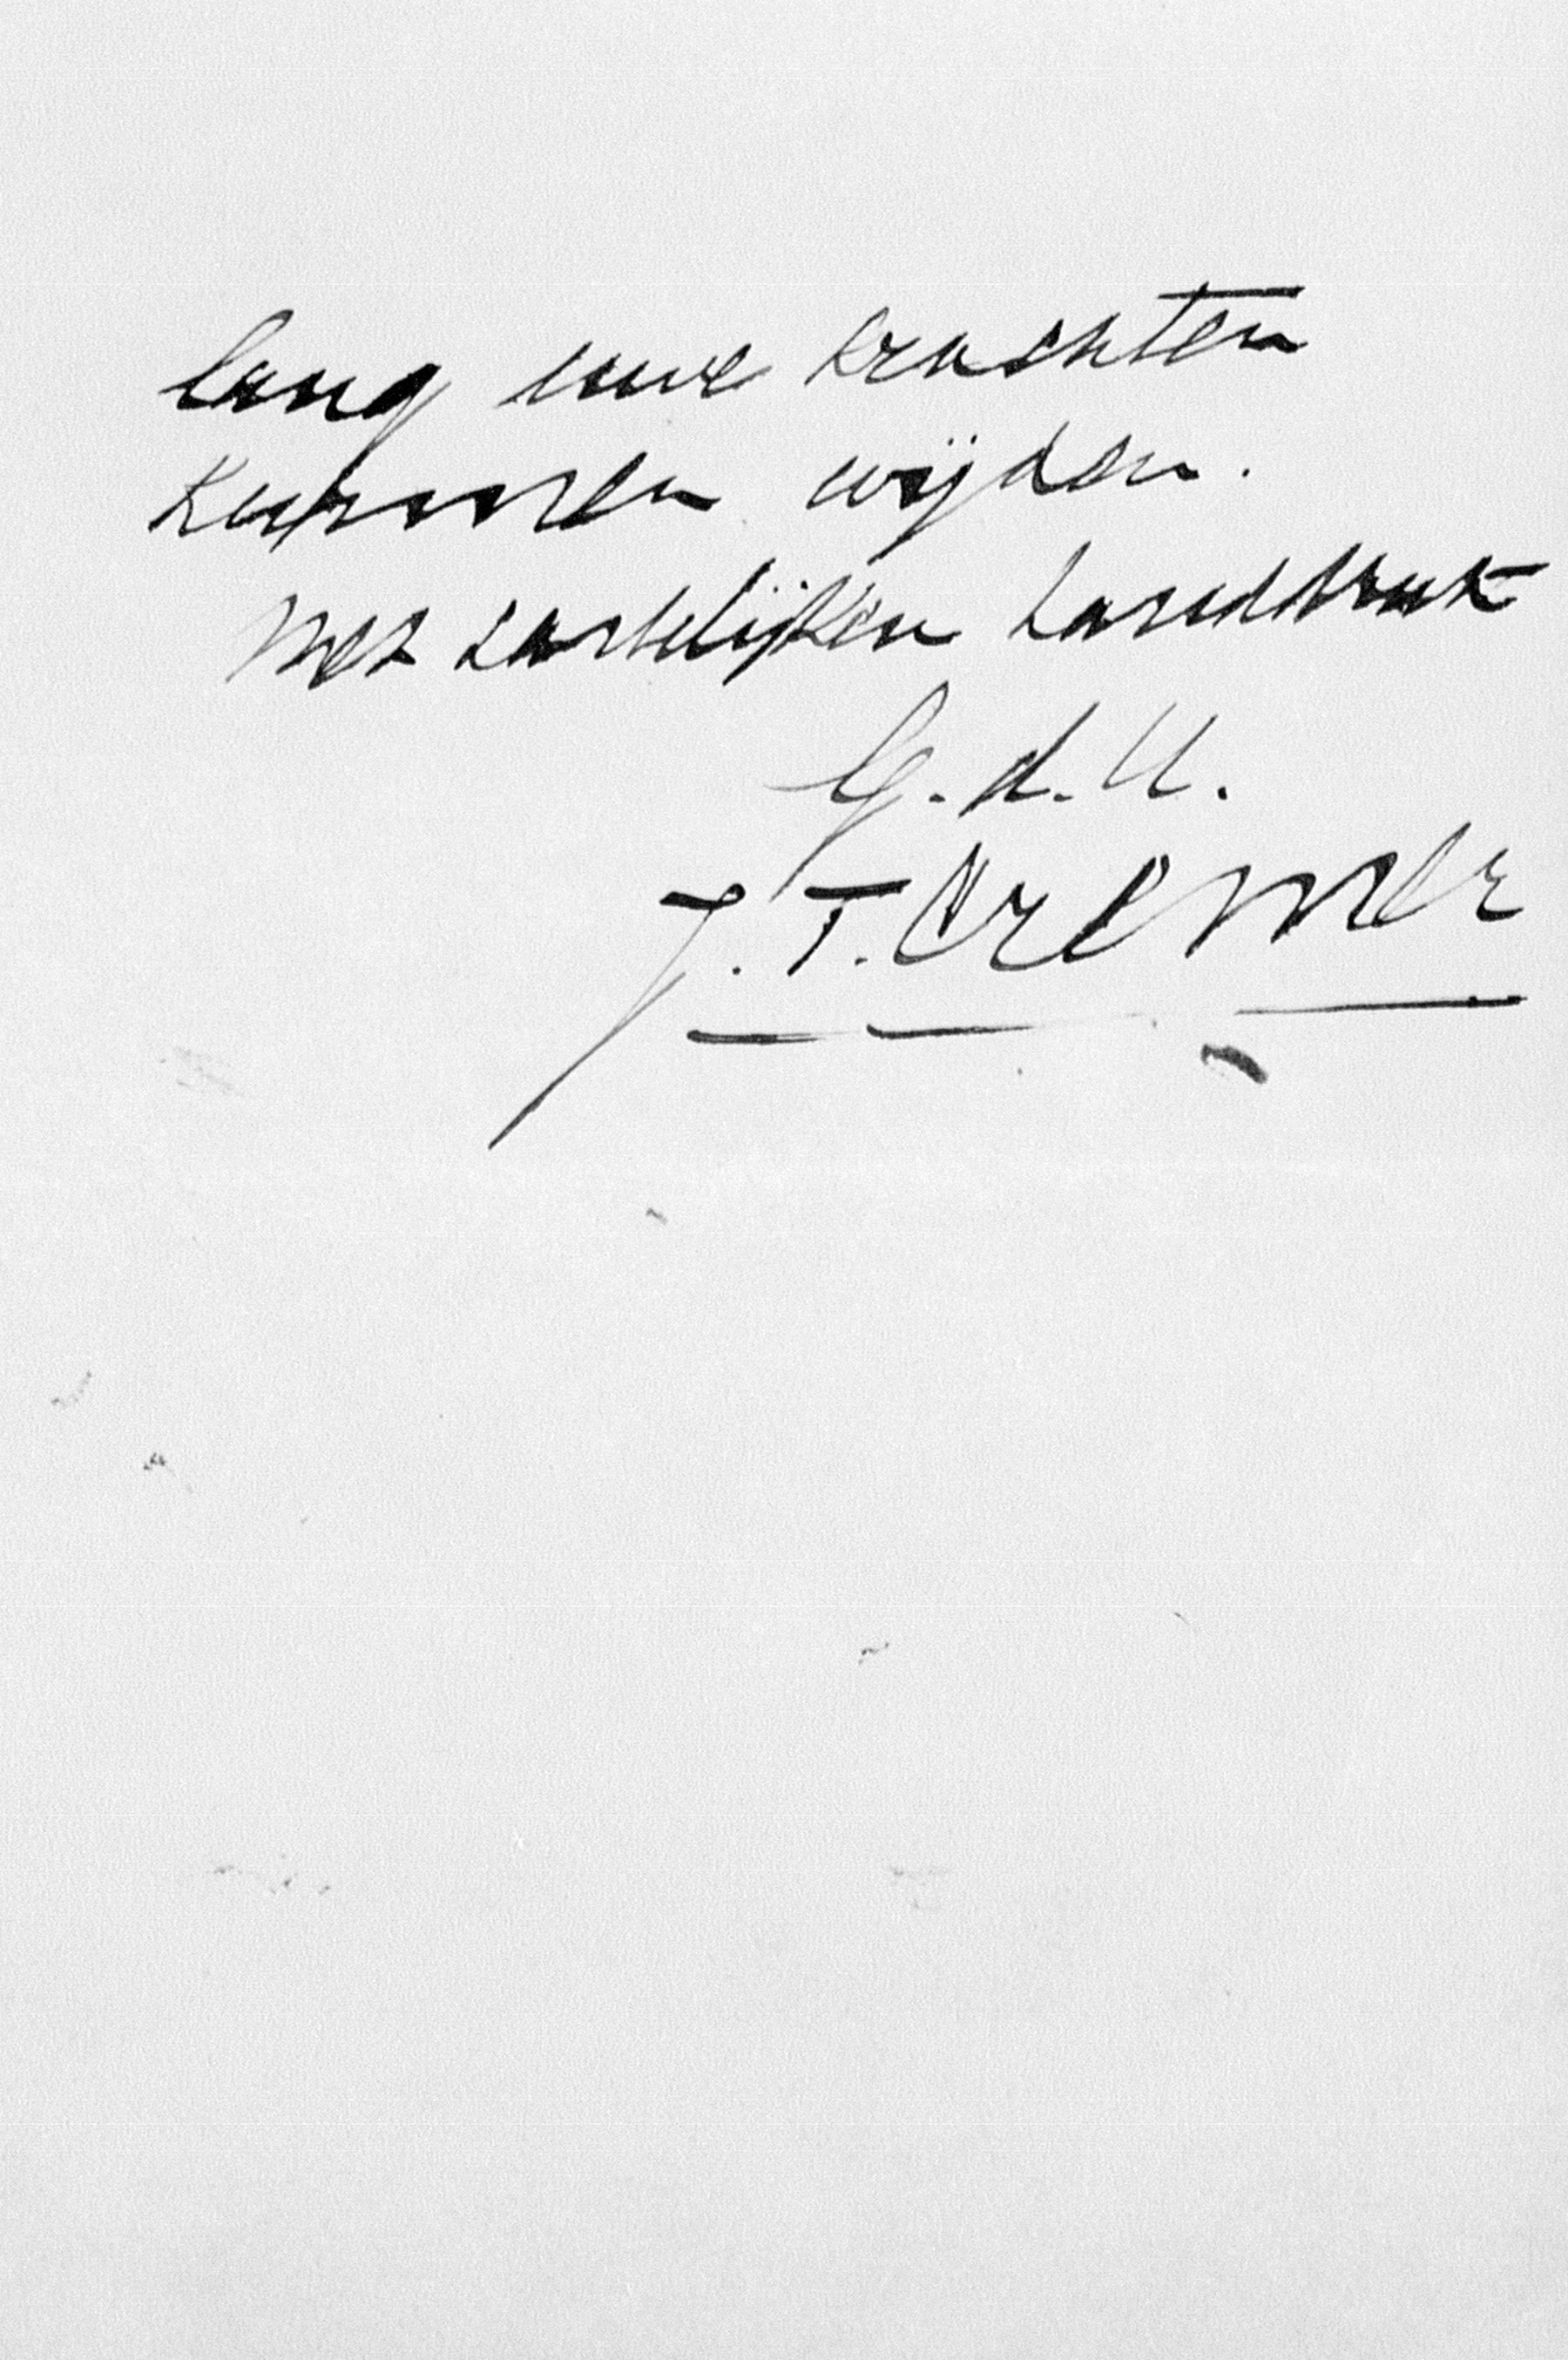 lang uwe krachten
kunnen wijden.
Met hartelijken handdruk
G. d. U.
J. T. Cremer